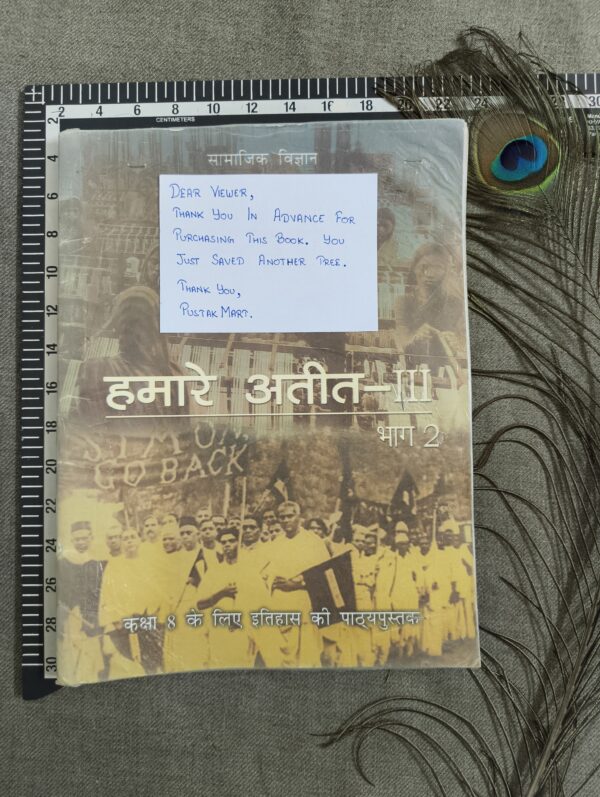 2 4 6 8 10 12 14 16 18 20 22 24 30
CENTIMETERS
2 4 6 8 10 12 14 16 18 20 22 24 26 28 30
सामाजिक विज्ञान
DEAR VIEWER,
THANK YOU IN ADVANCE FOR
PURCHASING THIS BOOK. YOU
JUST SAVED ANOTHER TREE.
THANK YOU,
PUSTAK MART.
हमारे अतीत–III
भाग 2
SIMON
GO BACK
कक्षा 8 के लिए इतिहास की पाठ्यपुस्तक